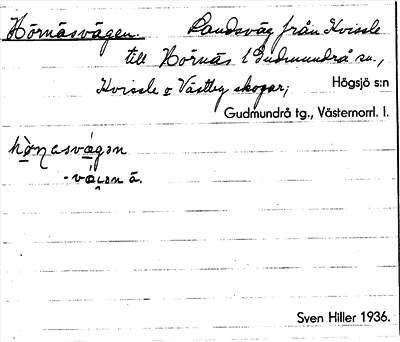 Hörnäsvägen. Landsväg från Kvissle
till Hörnäs i Gudmundrå sn.,
Kvissle o Västby skogar; Högsjö s:n
Gudmundrå tg., Västernorrl. l.
-vägən ä.
Sven Hiller 1936.